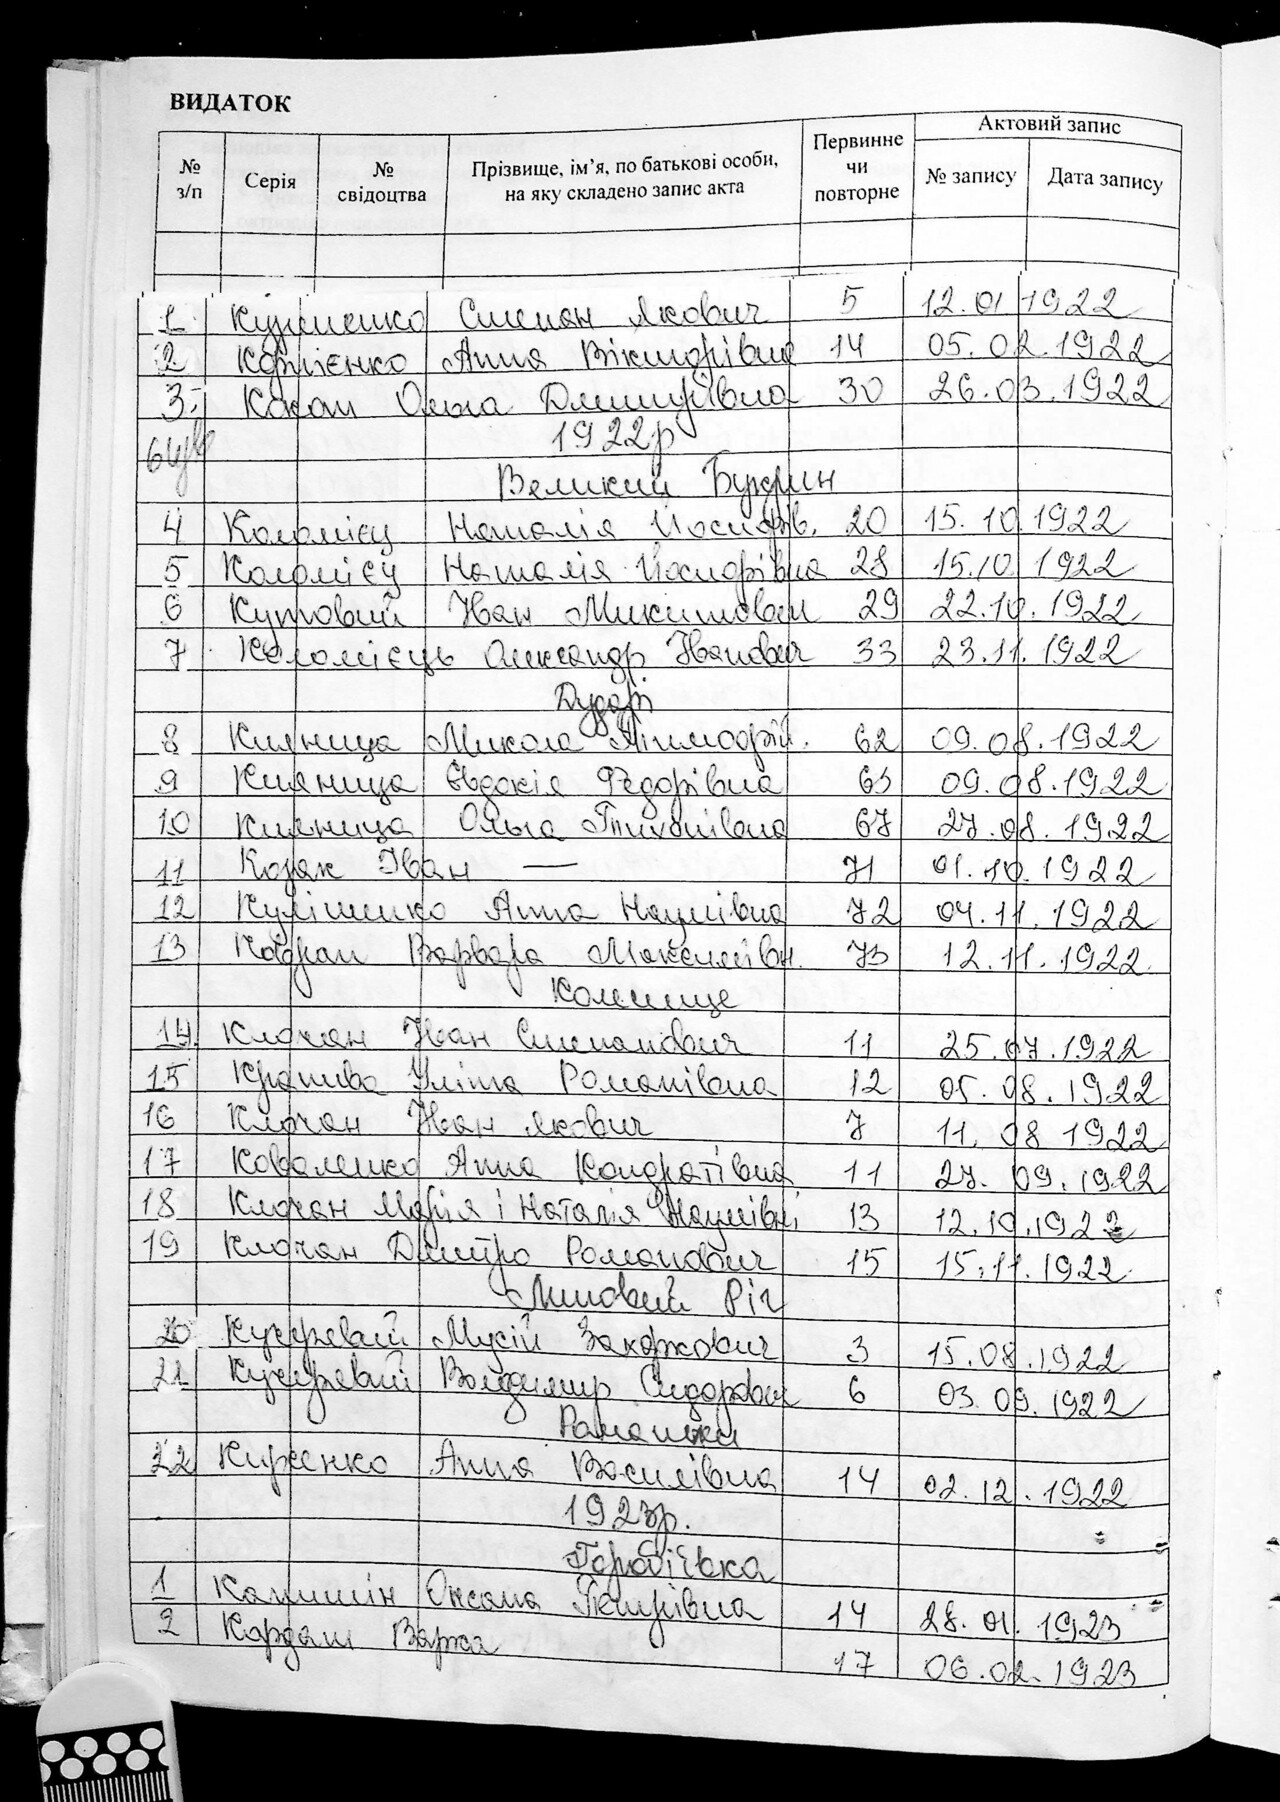 ВИДАТОК
№ з/п Серія № свідоцтва Прізвище, ім’я, по батькові особи, на яку складено запис акта Первинне чи повторне Актовий запис
№ запису Дата запису
1 Степан Якович 5 12.01 1922
2 Корнієнко Анна Вікторівна 14 05.02.1922
3 Ольга Дмитрівна 30 26.03.1922
1922р
Великий Букрин
4 Коломієц Наталія Йосипів. 20 15.10 1922
5 Коломієц Наталія Йосипівна 28 15.10 1922
6 Кутовий Іван Микитович 29 22.10.1922
7 Коломієць Олександр Іванович 33 23.11.1922
Дударі
8 Кияница Микола 62 09.08.1922
9 Кияница Євдокія Федорівна 63 09.08.1922
10 Кияница Ольга Тихонівна 67 27.08.1922
11 Козак Іван — 71 01.10.1922
12 Кулішенко Анна Наумівна 72 04.11.1922
13 Варвара Максимівн. 73 12.11.1922
14. Клочан Іван Степанович 11 25.07.1922
15 Кропива Уліта Романівна 12 05.08.1922
16 Клочан Іван Якович 7 11.08 1922
17 Коваленко Анна Кондратівна 11 27.09.1922
18 Клочан Марія і Наталія Наумівні 13 12.10.1922
19 Клочан Дмитро Романович 15 15.11.1922
Липовий Ріг
20 Кучерявий Мусій Захарович 3 15.08.1922
21 Кучерявий Володимир Сидорович 6 03.09.1922
Ромашки
22 Анна Василівна 14 02.12.1922
1923р.
1 Оксана Петрівна 14 28.01.1923
2 Кардаш Варка 17 06.02.1923